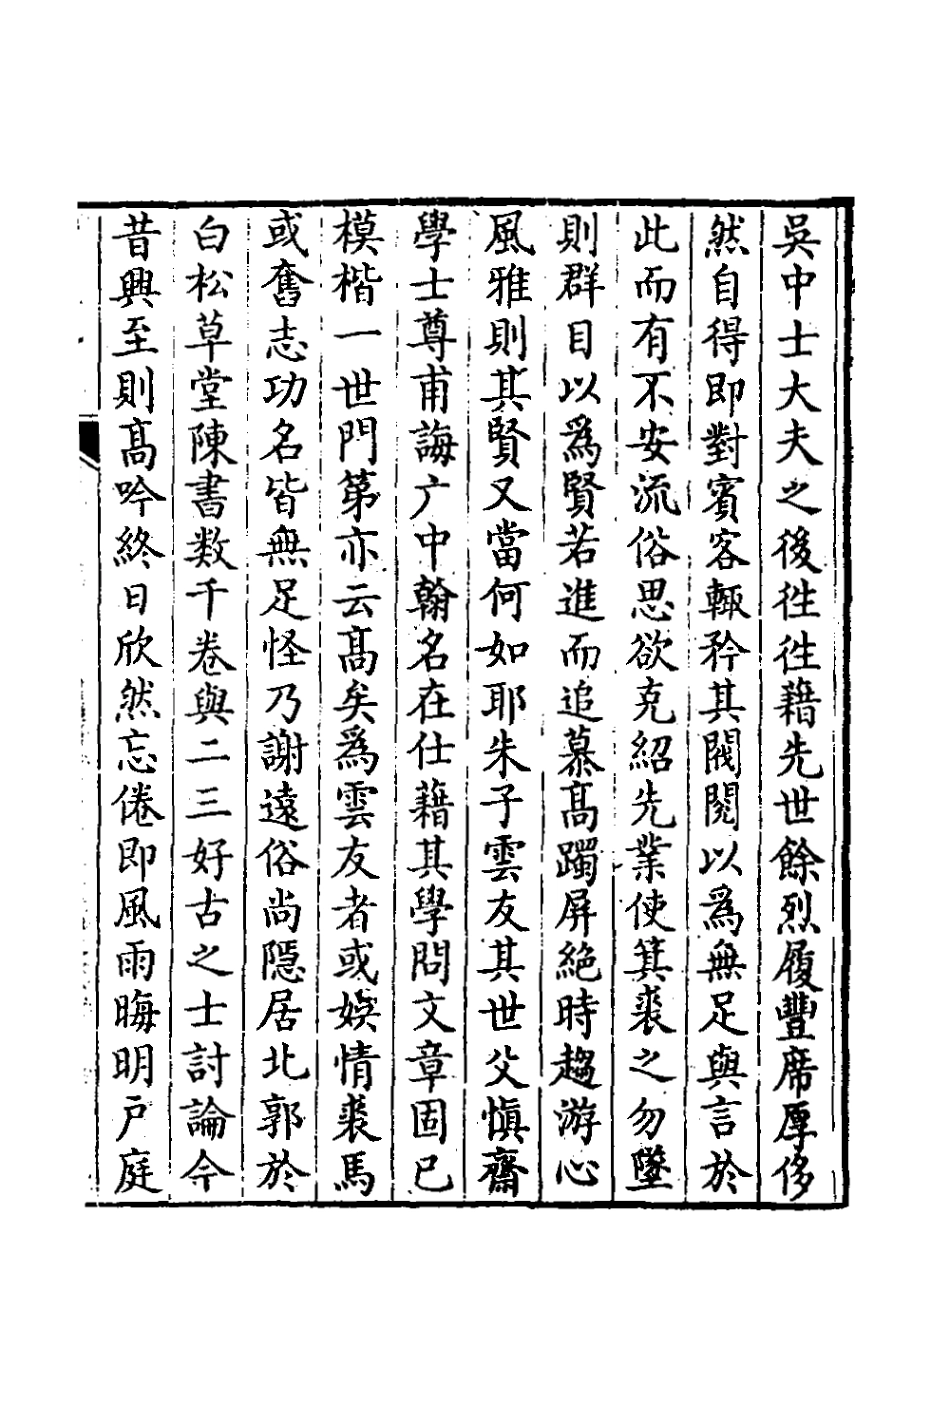 吳中士大夫之後徃徃藉先世餘烈履豐席厚侈
然自得即對賓客輙矜其閥閱以爲無足與言於
此而有不安流俗思欲克紹先業使箕裘之勿墜
則群目以爲賢若進而追慕髙躅屏絕時趨游心
風雅則其賢又當何如耶朱子雲友其世父愼齋
學士尊甫誨广中翰名在仕藉其學問文章固已
模楷一世門第亦云髙矣爲雲友者或娛情裘馬
或奮志功名皆無足怪乃謝遠俗尚隱居北郭於
白松草堂陳書数千卷與二三好古之士討論今
昔興至則髙吟終日欣然忘倦即風雨晦明戸庭